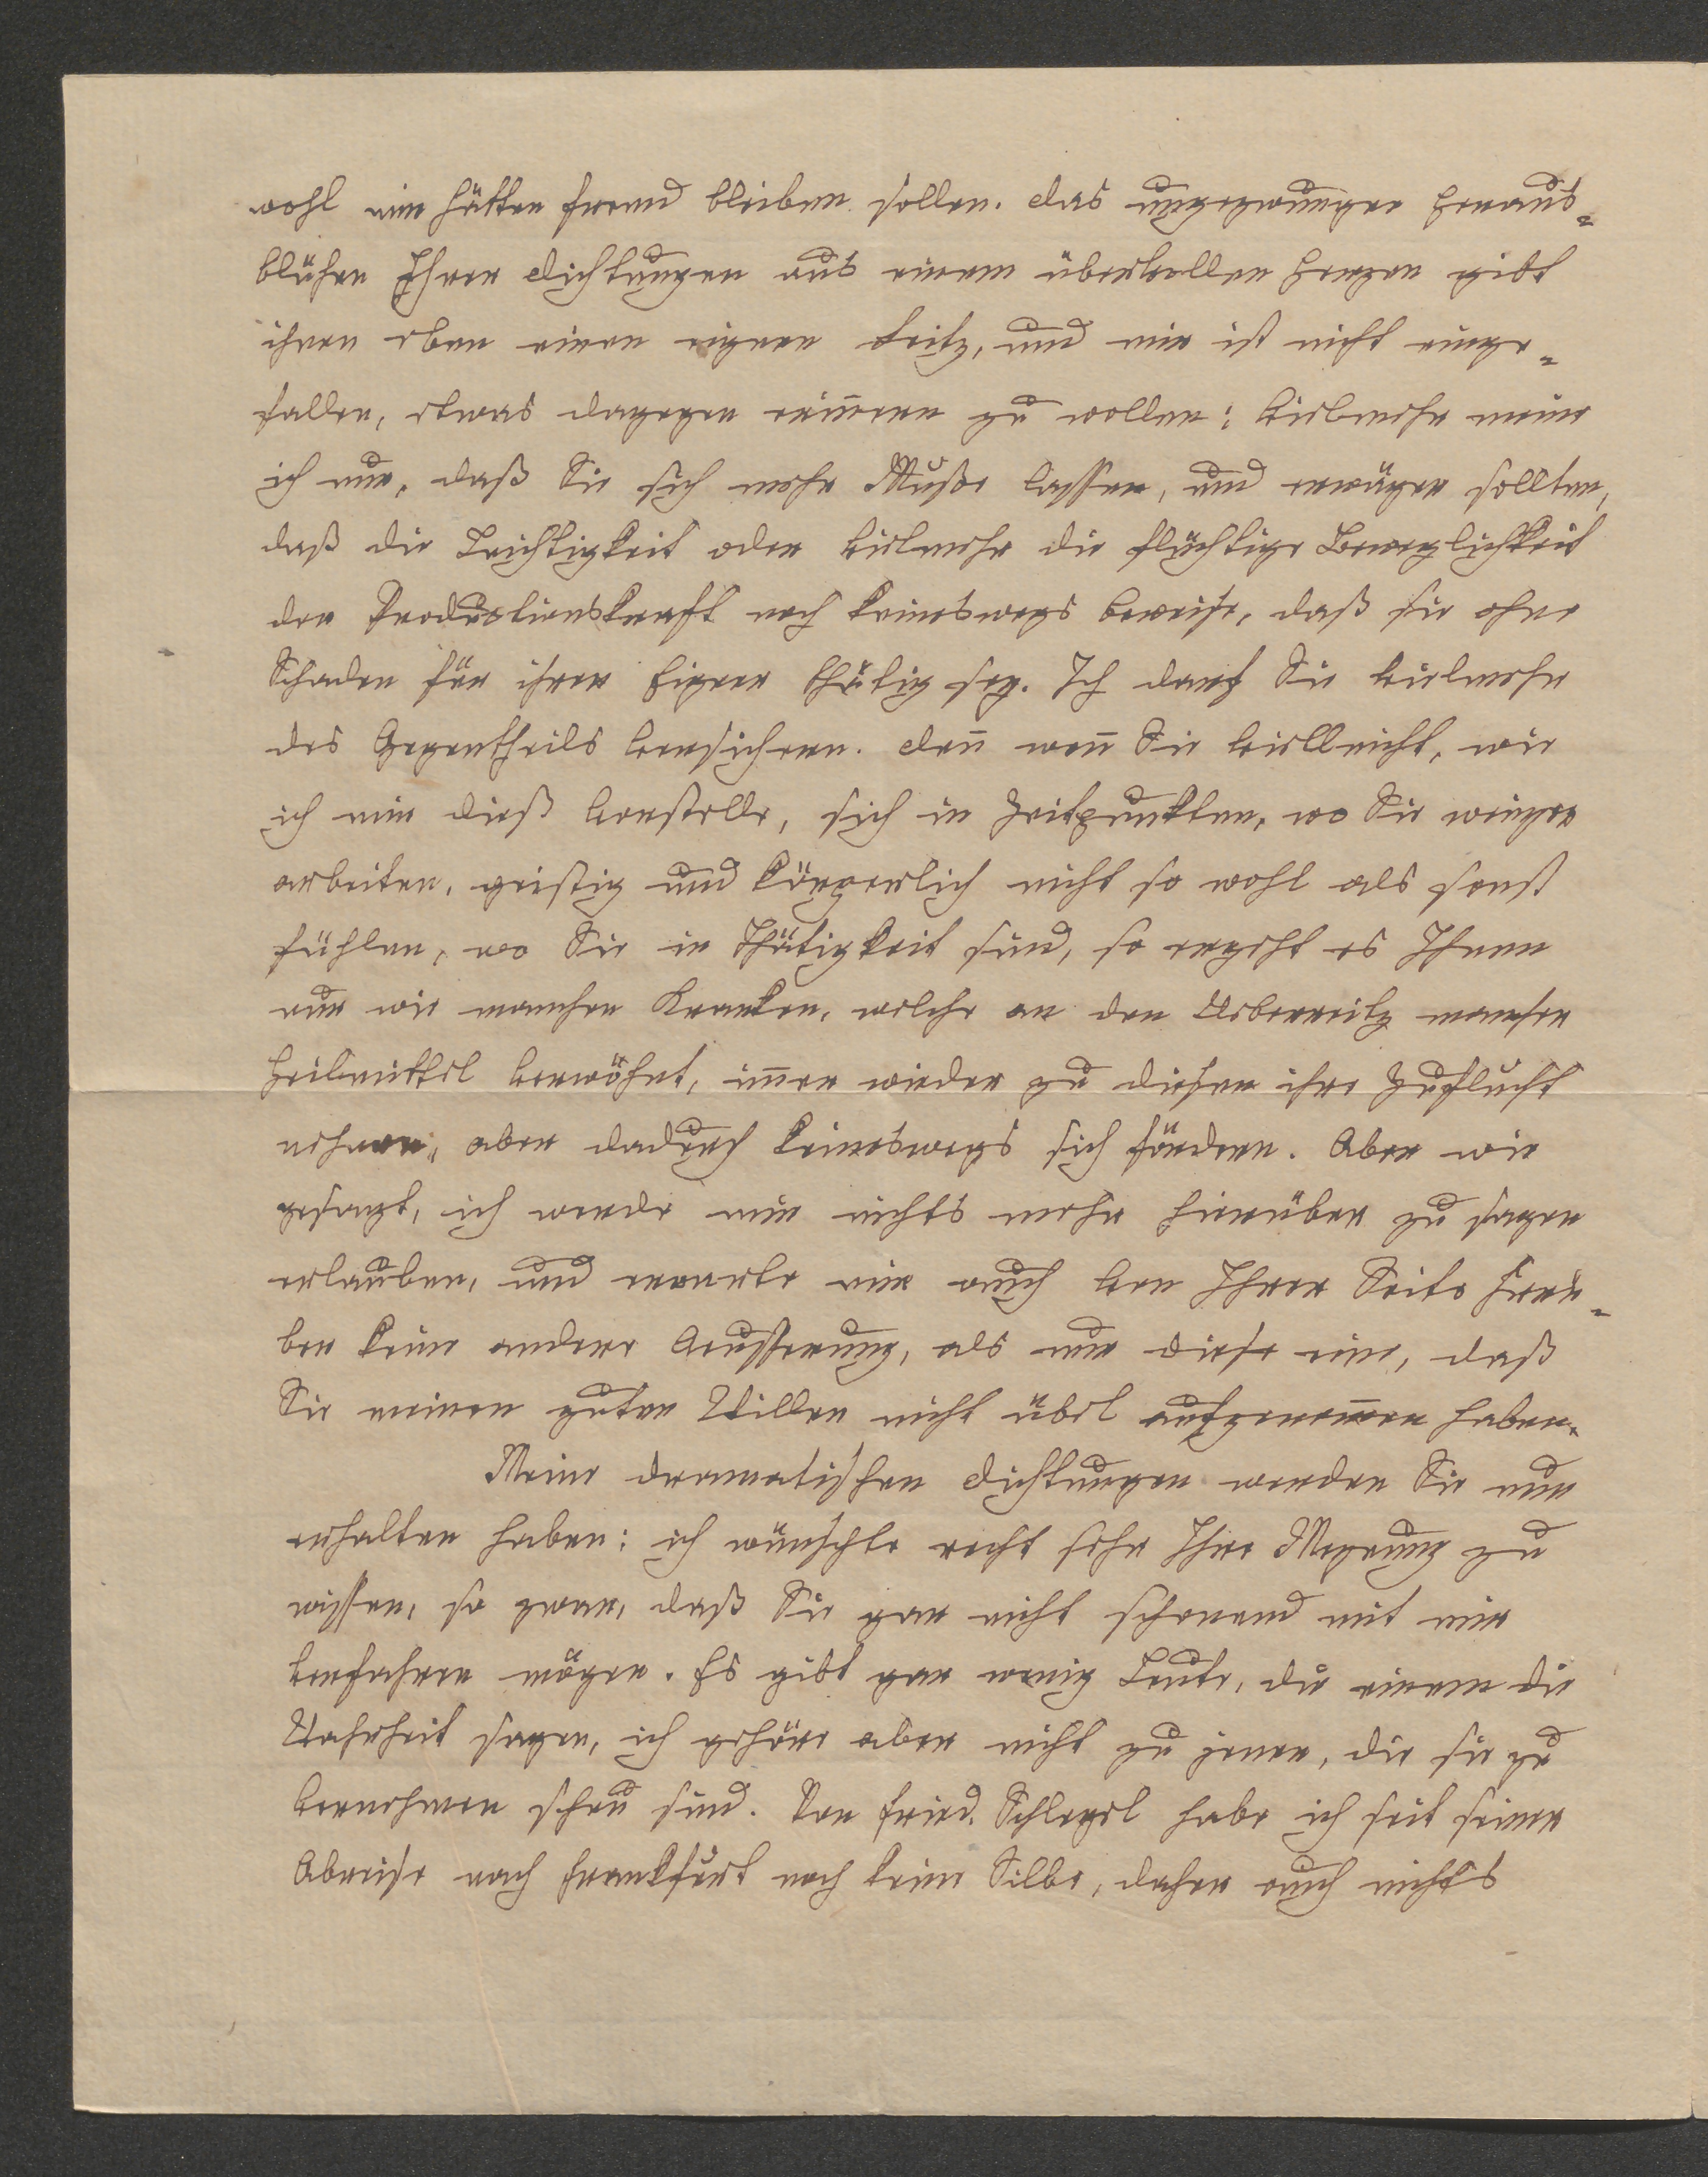 wohl nie hätten fremd bleiben sollen. Das ungezwungene Heraus-
blühen Ihrer Dichtungen aus einem übervollen Herzen gibt
ihnen eben einen eignen Reitz, und mir ist nicht einge-
fallen, etwas dagegen eriñern zu wollen; vielmehr meine
ich nur, daß Sie sich mehr Muße lassen, und erwägen sollten,
daß die Leichtigkeit oder vielmehr die flüchtige Beweglichkeit
der Productionskraft noch keineswegs beweise, daß sie ohne
Schaden für ihren Eigner thätig sey. Ich darf Sie vielmehr
des Gegentheils versichern. Deñ weñ Sie vielleicht, wie
ich mir dieß vorstelle, sich in Zeitpunkten, wo Sie weniger
arbeiten, geistig und körperlich nicht so wohl als sonst
fühlen, wo Sie in Thätigkeit sind, so ergeht es Ihnen
nur wie manchen Kranken, welche an den Ueberreitz mancher
Heilmittel verwöhnt, im̃er wieder zu diesen ihre Zuflucht
nehmen, aber dadurch keineswegs sich fördern. Aber wie
gesagt, ich werde mir nichts mehr hierüber zu sagen
erlauben, und erwarte mir auch von Ihrer Seite hierü-
ber keine andere Aeusserung, als nur diese eine, daß
Sie meinen guten Willen nicht übel aufgenom̃en haben.
Meine dramatischen Dichtungen werden Sie nun
erhalten haben: ich wünschte recht sehr Ihre Meynung zu
wissen, so zwar, daß Sie gar nicht schonend mit mir
verfahren mögen. Es gibt gar wenig Leute, die einem die
Wahrheit sagen, ich gehöre aber nicht zu jenen, die sie zu
vernehmen scheu sind. Von Fried. Schlegel habe ich seit seiner
Abreise nach Frankfurt noch keine Silbe, daher auch nichts